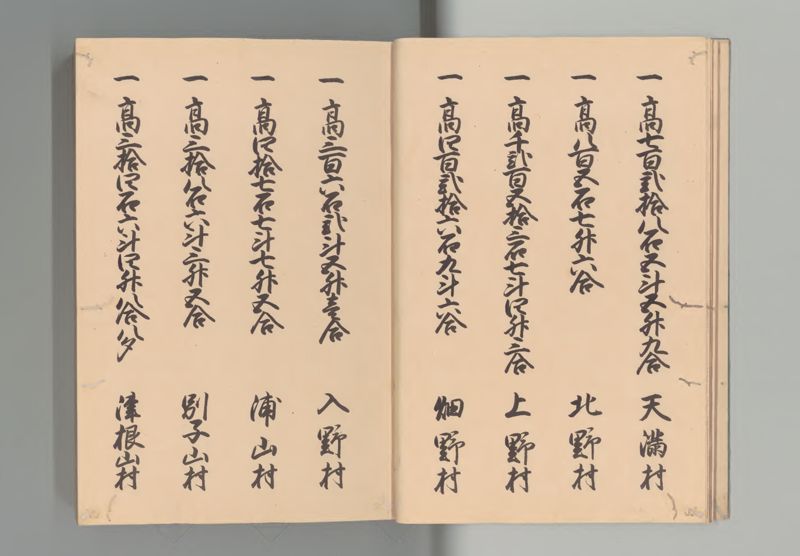 一高七百弐拾八石五斗五升九合 天満村
一高八百五石七升六合 北野村
一高千弐百五拾三石七斗四升三合 上野村
一高四百弐拾六石九斗六合 畑野村
一高三百六石弐斗五升壱合 入野村
一高四拾七石七斗七升五合 浦山村
一高三拾八石六斗三升五合 別子山村
一高三拾四石六斗四升八合八夕 津根山村